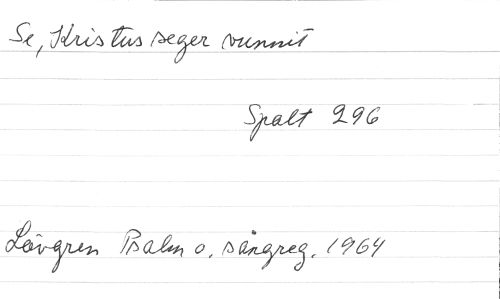 Se, Kristus seger vunnit
Spalt 296
Lövgren Psalm o. sångreg. 1964